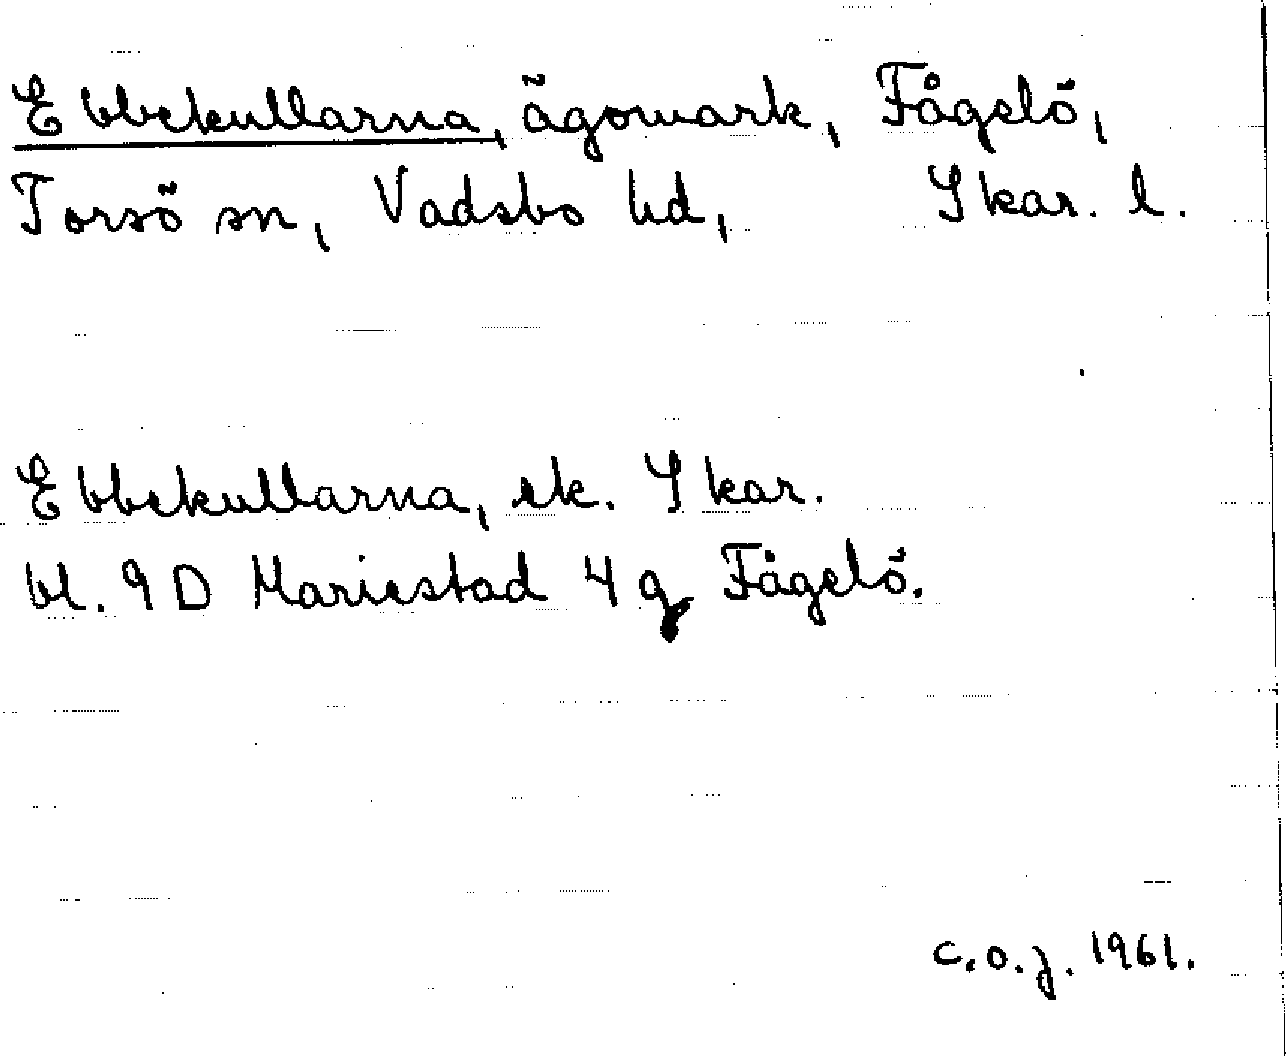 Ebbekullarna, ägomark, Fågelö,
Torsö sn, Vadsbo hd, Skar. l.
Ebbekullarna, ek. Skar.
bl. 9D Mariestad 4g Fågelö.
C.O.J. 1961.